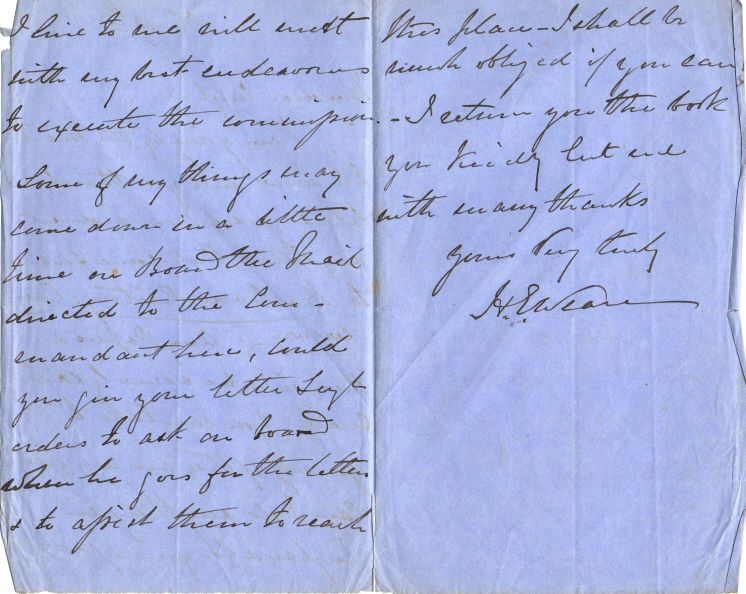 I live to me will meet
with my best endeavours
to execute the commission.
Some of my things may
come down in a little
time on Board the Mail
directed to the Com-
mandant here, could
you give your letter Sergt
orders to ask on board
when he goes for the letters
& to assist them to reach
this place - I shall be
much obliged if you can
- I return you the book
you kindly lent me
with many thanks
yours Very truly
H. E.